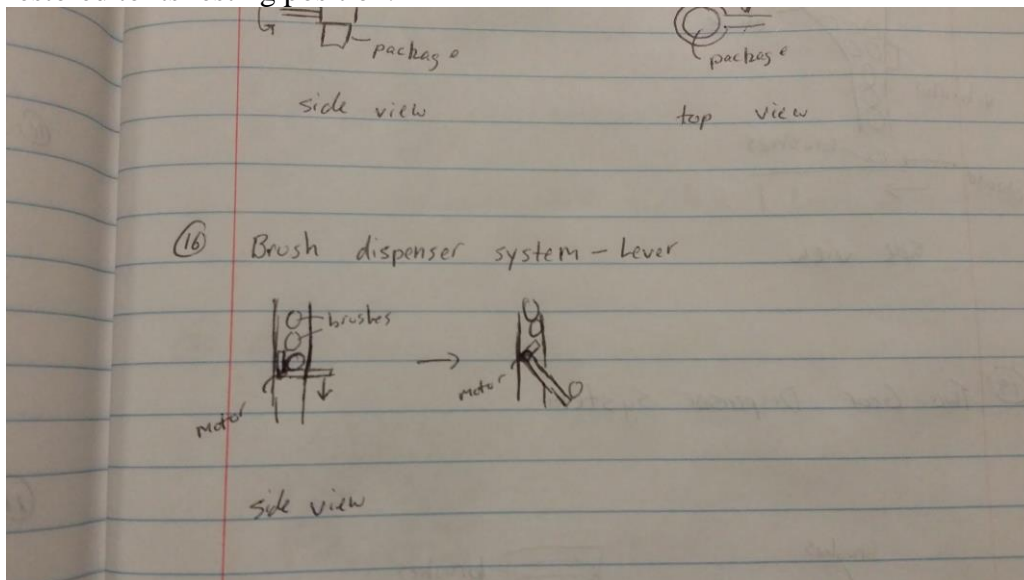 package
package
side view
top view
16 Brush dispenser system - Lever
brushes
motor
motor
side view